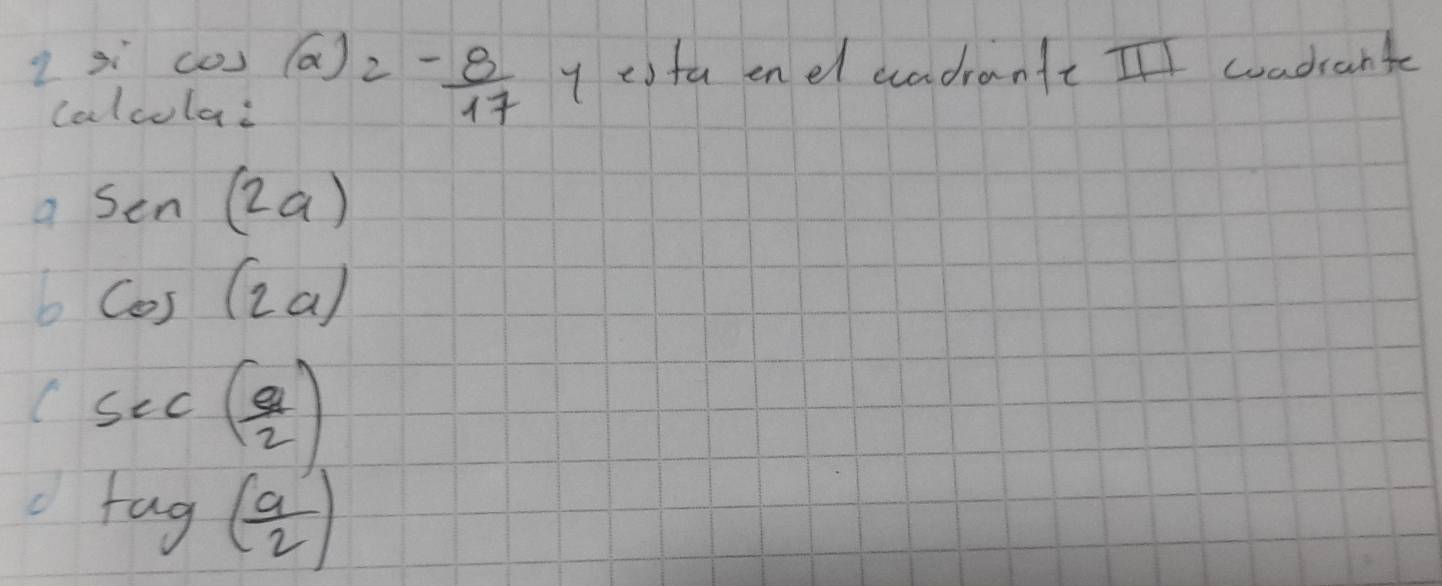 2 si cos (a) = - 8/17 y esta en el cuadrante III cuadrante
calcula:
a Sen (2a)
b Cos (2a)
c sec (a/2)
d tag (a/2)